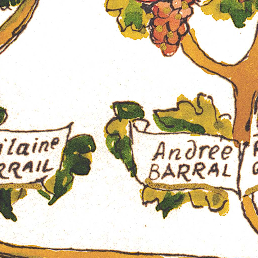 ilaine
RRAIL
Andrée
BARRAL